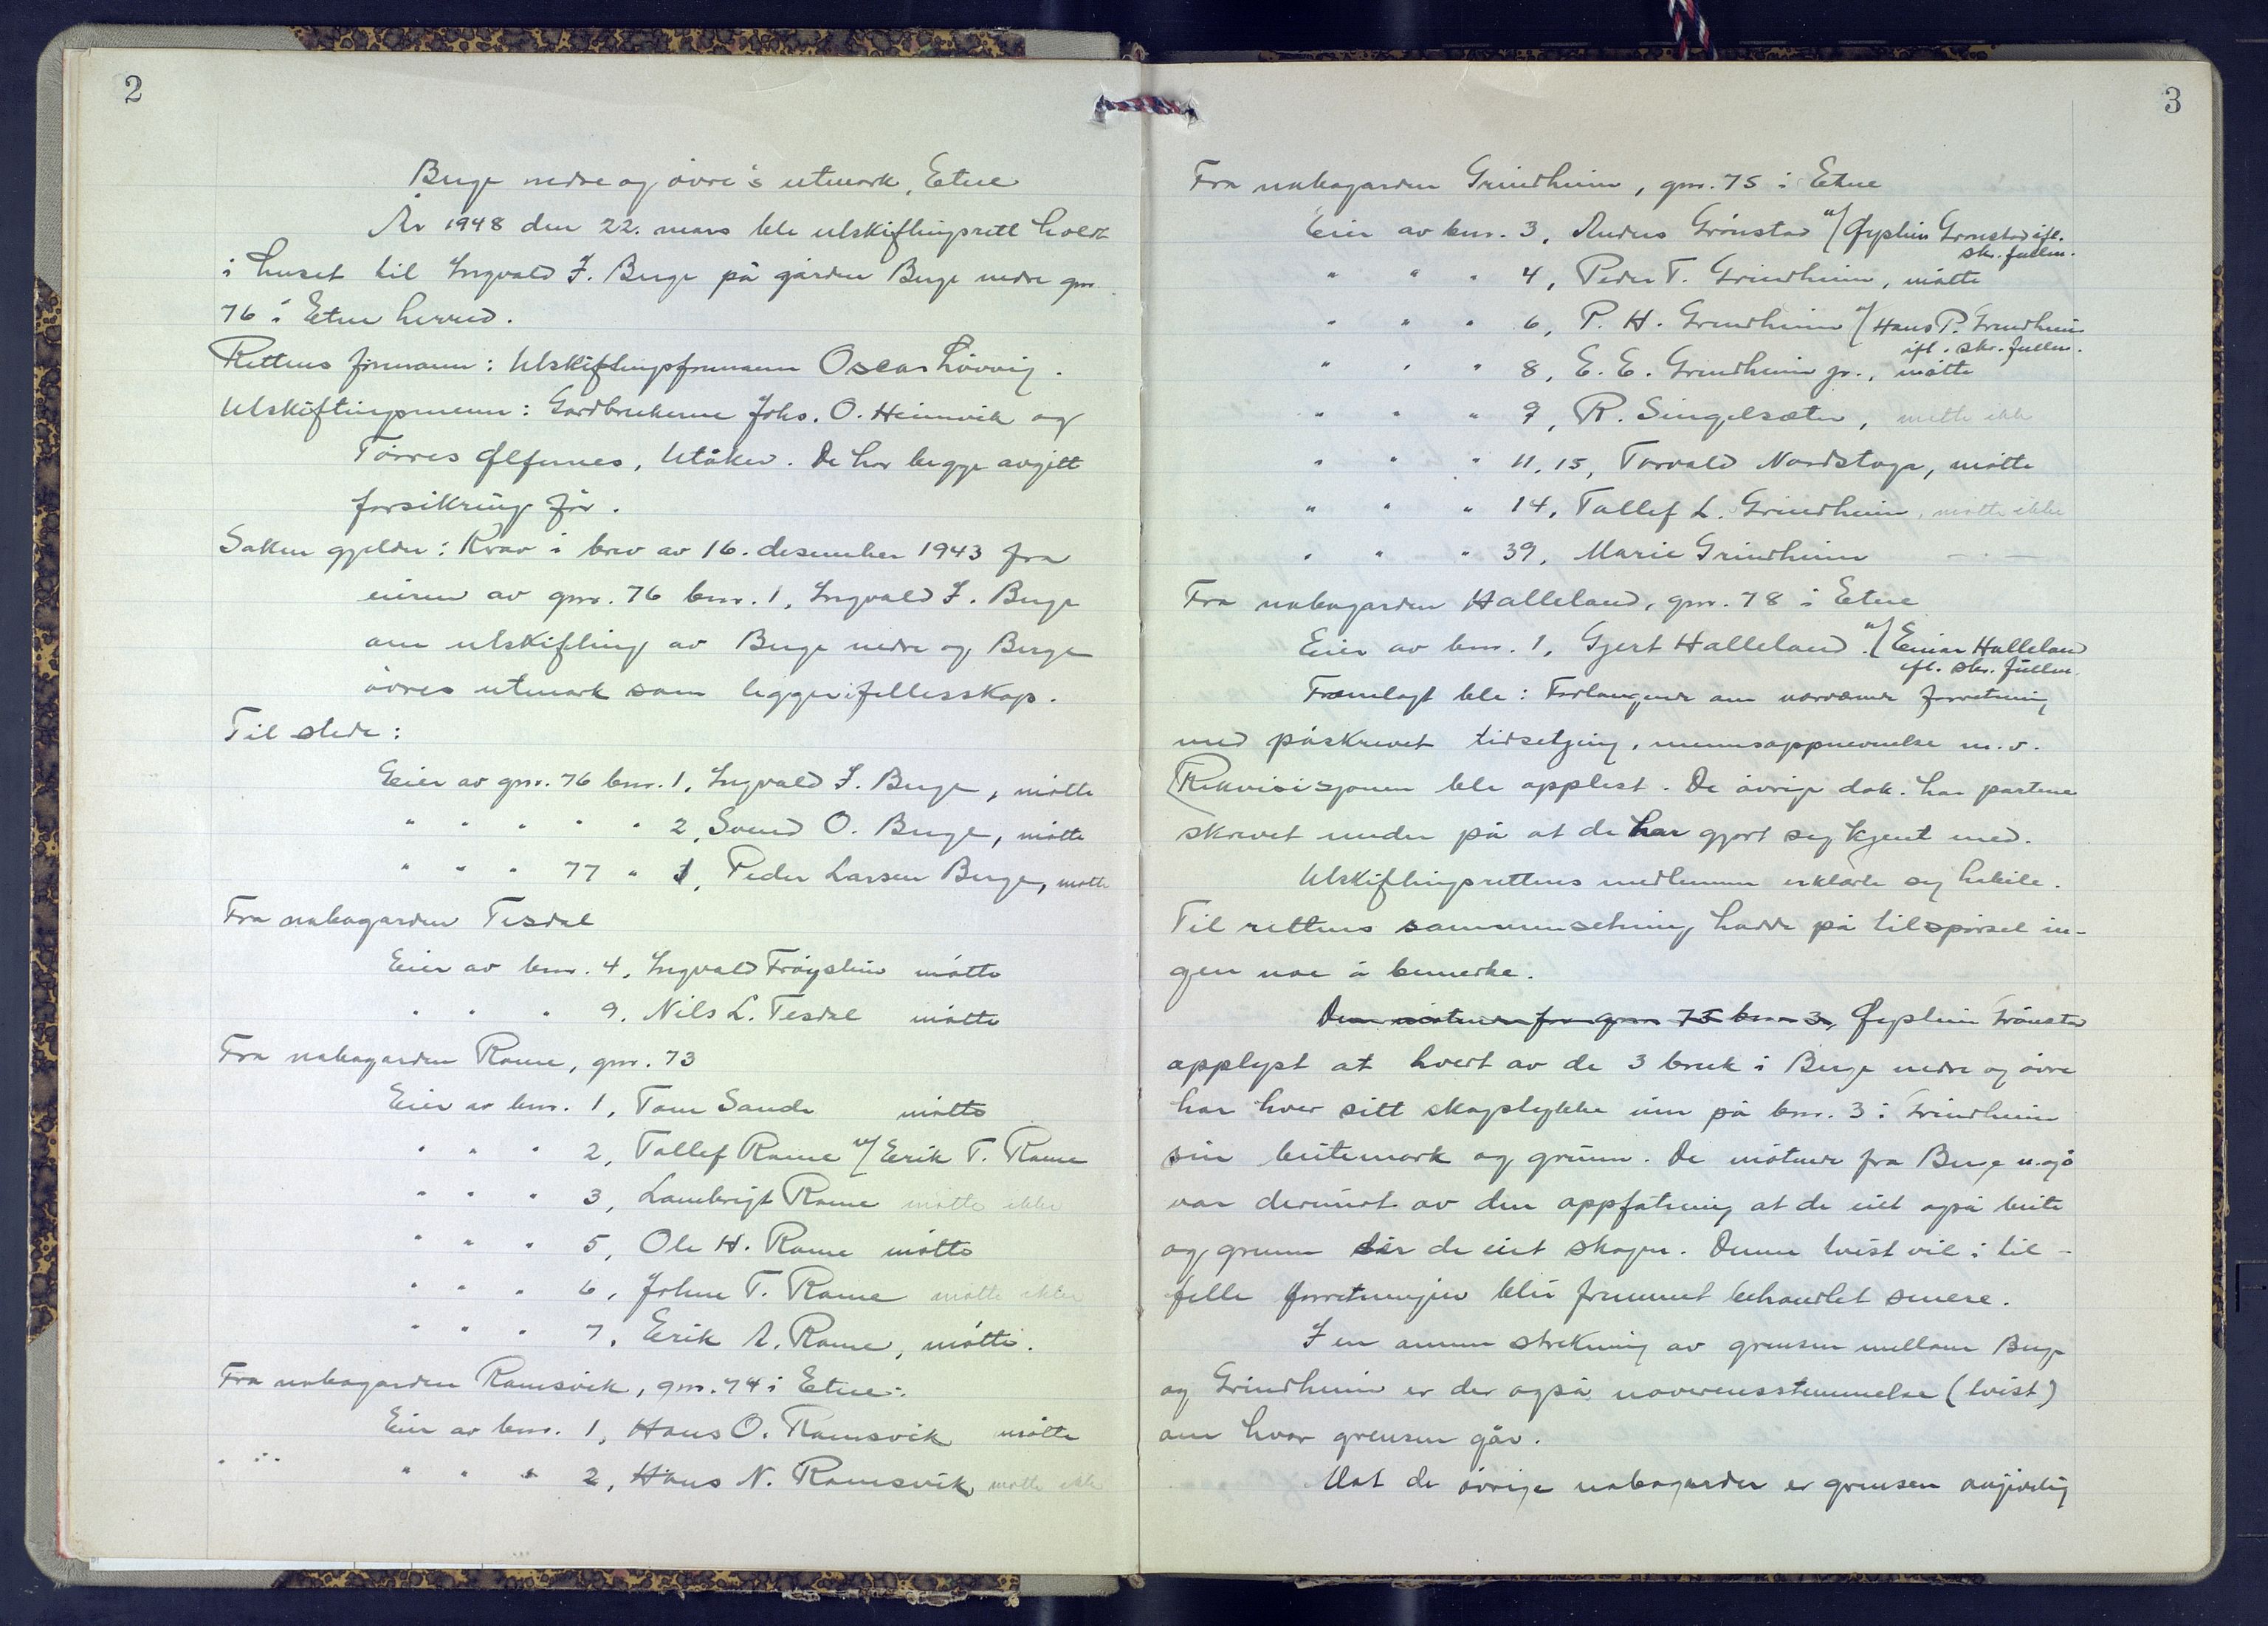 2
Berge nedre og övre's utmark, Etne
År 1948 den 22. mars ble utskiftingsrett holdt
i huset til Ingvald J. Berge på gården Berge nedre gnr.
76 i Etne herred.
Rettens formann: Utskiftingsformann Oscar Hövvig.
Utskiftingsmenn: Gardbrukerne Johs. O. Heimvik og
Törres Ølfernes, Utåker. De har begge avgitt
forsikring för.
Saken gjelder: Krav i brev av 16. desember 1943 fra
eieren av gnr. 76 bnr. 1, Ingvald J. Berge
om utskifting av Berge nedre og Berge
övres utmark som ligger i fellesskap.
Til stede:
Eier av gnr. 76 bnr. 1, Ingvald J. Berge, mötte
" " " " " 2, Svend O. Berge, mötte
" " " 77 " 1, Peder Larsen Berge, mötte
Fra nabogarden Tesdal
Eier av bnr. 4, Ingvald Fröystein mötte
" " " 9, Nils L. Tesdal mötte
Fra nabogarden Rame, gnr. 73
Eier av bnr. 1, Tom Sande mötte
" " " 2, Tollef Rame v/ Erik T. Rame
" " " 3, Lambrigt Rame mötte ikke
" " " 5, Ole H. Rame mötte
" " " 6, Johne T. Rame mötte ikke
" " " 7, Erik A. Rame, mötte.
Fra nabogarden Ramsvik, gnr. 74 i Etne:
Eier av bnr. 1, Hans O. Ramsvik mötte
" " " 2, Hans N. Ramsvik, mötte ikke
3
Fra nabogarden Grindheim, gnr. 75 i Etne
Eier av bnr. 3, Anders Grönstad v/ Øystein Grönstad ifl.
skr. fullm.
" " " 4, Peder T. Grindheim, mötte
" " " 6, P. H. Grindheim v/ Hans P. Grindheim
ifl. skr. fullm.
" " " 8, E. E. Grindheim jr., mötte
" " " 9, R. Singelsæter, mötte ikke
" " " 11, 15, Torvald Nordstoga, mötte
" " " 14, Tollef L. Grindheim, mötte ikke
" " " 39, Marie Grindheim — " —
Fra nabogarden Halleland, gnr. 78 i Etne
Eier av bnr. 1, Gjert Halleland v/ Einar Halleland
ifl. skr. fullm.
Fremlagt ble: Forlangende om nærværende forretning
med påskrevet tidsetjing, mennsoppnevnelse m.v.
Rekvisisjonen ble opplest. De övrige dok. har partene
skrevet under på at de har gjort seg kjent med.
Utskiftingsrettens medlemmer erklærte seg habile.
Til rettens sammensetning hadde på tilspörsel in-
gen noe å bemerke.
Den møtende for gnr. 75 bnr. 3, Øystein Grönstad
opplyst at hvert av de 3 bruk i Berge nedre og övre
har hver sitt skogstykke inn på bnr. 3 i Grindheim
sin beitemark og grunn. De mötende fra Berge n. og ö
var derimot av den oppfatning at de eiet også beite
og grunn der de eiet skogen. Denne tvist vil i til-
felle forretningen blir fremmet behandlet senere.
I en annen strekning av grensen mellom Berge
og Grindheim er der også uoverensstemmelse (tvist)
om hvor grensen går.
Mot de övrige nabogarder er grensen angivelig